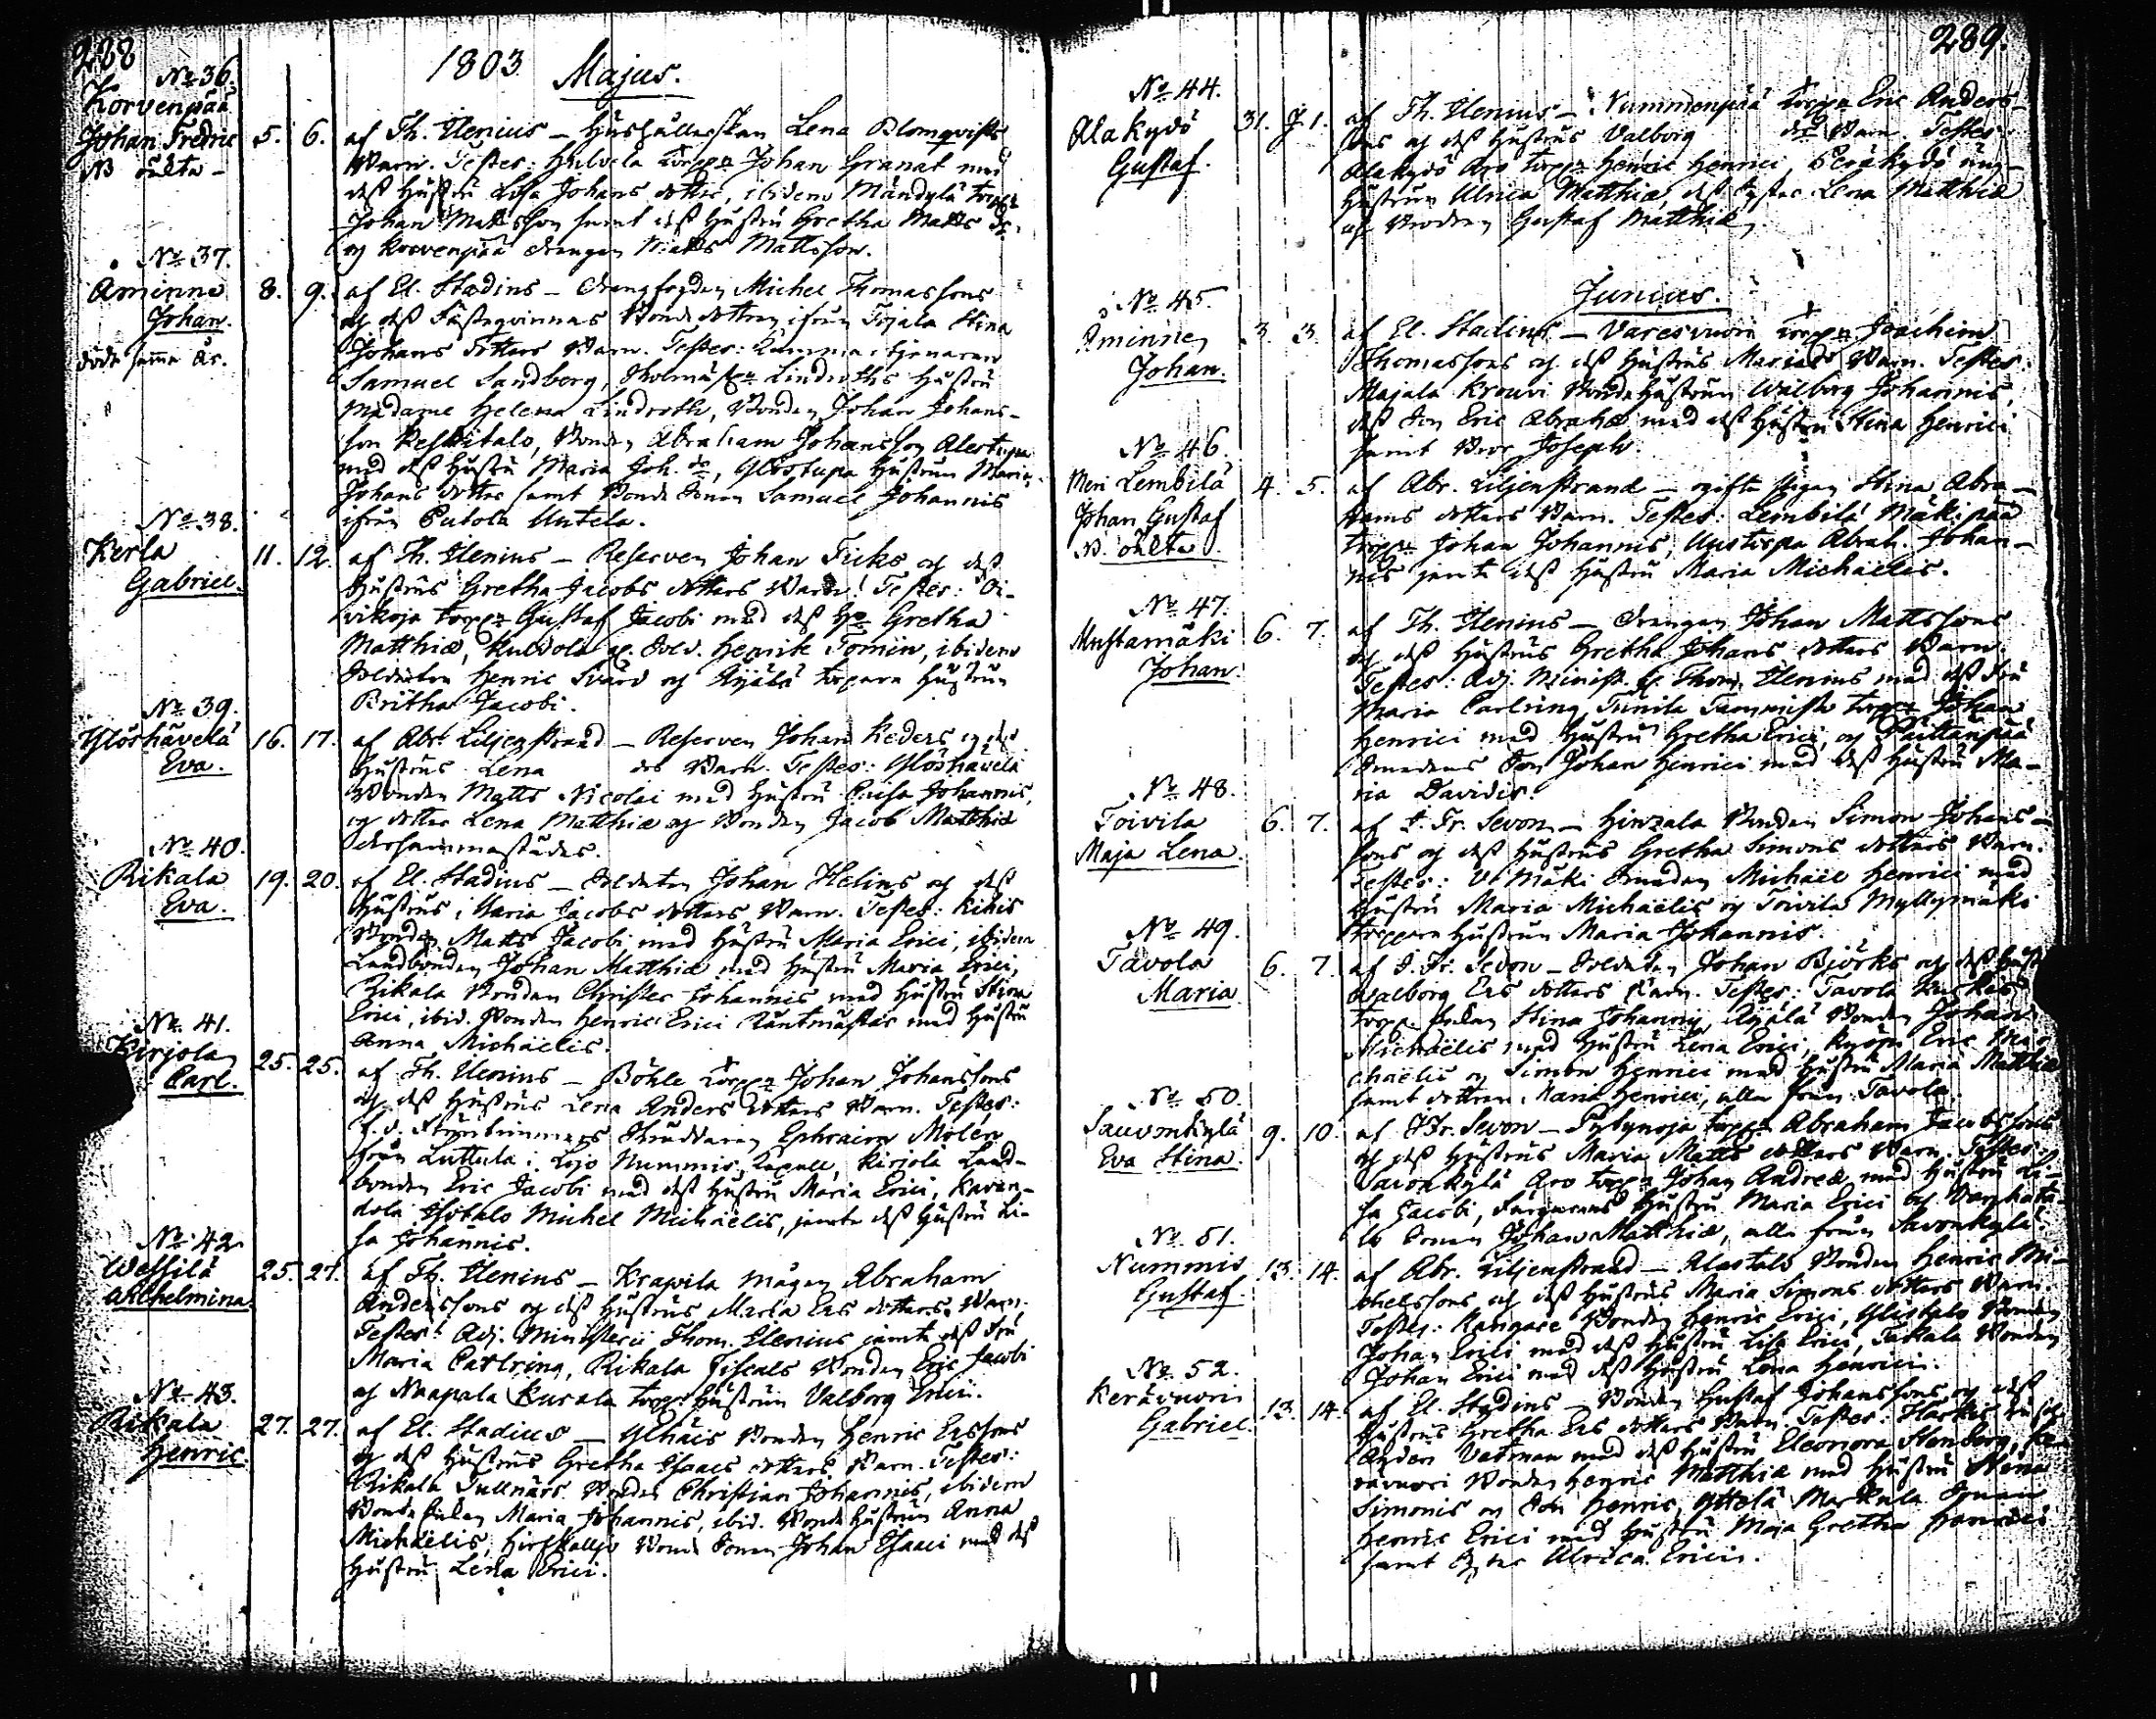 288
1803. Majus.
No 36.
Korvenpää
Johan Fredric
NB oälta
5. 6.
af Th. Ilenius - Hushållerskan Lena Blomqvists
Barn. Testes: Hulvela torp:n Johan Granat med
dess Hustru Lisa Johans dotter, ibidem Mändylä torp:n
Johan Mattsson samt dess Hustru Gretha Matts dr.
og Korvenpää drengen Matts Mattsson.
No 37.
Aminne
Johan.
döde samma år.
8. 9.
af El. Stadius - drengfogden Michel Thomassons
og dess Fästeqvinnas Bonde dottren ifrån Tojala Stina
Johans dotters Barn. Testes: Cammartjenaren
Samuel Sandborg, Lindroths Hustru
Madame Helena Lindroth, Bonden Johan Johans-
son Keskitalo, Bonden Abraham Johansson Alestupa
med dess Hustru Maria Joh. dr, Ylöstupa Hustrun Maria
Johans dotter samt Bonde Sonen Samuel Johannis
ifrån Untela.
No 38.
Kerla
Gabriel.
11. 12.
af Th. Ilenius - Reserven Johan Ficks og dess
Hustrus Gretha Jacobs dotters Barn. Testes: Oi-
vikoja torp:n Gustaf Jacobi med dess H:u Gretha
Matthiæ, Kuldola Sold. Henrik Tomin, ibidem
Soldaten Henric Svärd og Äijälä torpare Hustrun
Britha Jacobi.
No 39.
Ylöshävelä
Eva.
16. 17.
af Abr. Liljenstrand - Reserven Johan Keders og dess
Hustrus Lena drs Barn. Testes: Ylöshävelä
Bonden Matts Nicolai med Hustru Caisa Johannis,
og dotter Lena Matthiæ og Bonden Jacob Matthiæ
dersammastädes.
No 40.
Rikala
Eva.
19. 20.
af El. Stadius - Soldaten Johan Helins og dess
Hustrus Maria Jacobs dotters Barn. Testes: Kikis
Bonden Matts Jacobi med Hustru Maria Erici, ibidem
Landbonden Johan Matthiæ med Hustru Maria Erici,
Rikala Bonden Christer Johannis med Hustru Stina
Erici, ibid. Bonden Henric Erici Räntmästar med Hustru
Anna Michaelis.
No. 41.
Kirjola
Carl.
25. 25.
af Th. Ilenius - Böhle torp:n Johan Johanssons
og dess Hustrus Lena Anders dotters Barn. Testes:
f. d. Skräddaren Ephraim Molen
från Luttula i Lojo Nummis Capell, Kirjola Land-
bonden Eric Jacobi med dess Hustru Maria Erici, Kaven-
dola Isotalo Michel Michaelis, jemte dess Hustru Li-
sa Johannis.
No. 42.
Wessilä
Wilhelmina.
25. 27.
af Th. Ilenius - Krapila mågen Abraham
Anderssons og dess Hustrus Maria Ers dotters Barn.
Testes: Adj. Ministerii Thom. Ilenius jemte dess Fru
Maria Carlring, Rikala Fiscals Bonden Eric Jacobi
og Naapala Kurala torp: Hustrun Valborg Erici.
No. 43.
Rikala
Henric.
27. 27.
af El. Stadius - Ylhäis Bonden Henric Erssons
og dess Hustrus Gretha Isaacs dotters Barn. Testes:
Rikala Tullnärs Bonden Christian Johannis, ibidem
Bonde Enkan Maria Johannis, ibid. Bonde Hustrun Anna
Michaelis, Hirskallio Bonde Sonen Johan Isaaci med dess
Hustru Lena Erici.
289.
No. 44.
Alakydö
Gustaf.
31. J 1.
af Th. Ilenius - Nummenpää torp:n Eric Anders-
sons og dess Hustrus Valborg drs Barn. Testes:
Alakydö Aro torp:n Henric Henrici Peräkydö
Hustrun Ulrica Matthiæ, dess Syster Lena Matthiæ
og Brodren Gustaf Matthiæ.
Junius.
No. 45.
Aminne
Johan.
3. 3.
af El. Stadius - Varesvuori torp:n Joachim
Thomassons og dess Hustrus Marias Barn. Testes:
Majala Krouvi Bonde Hustrun Walborg Johannis,
dess Son Eric Abrahæ med dess Hustru Stina Henrici
samt Bror Joseph.
No. 46.
Meri Lembilä
Johan Gustaf
NB. oälta.
4. 5.
af Abr. Liljenstrand - ogifta pigan Stina Abra-
hams dotters Barn. Testes: Lembilä Mäkipää
torp:n Johan Johannis, Uustupa Abrah. Johan-
nis jemte dess Hustru Maria Michaelis.
No. 47.
Mustamäki
Johan.
6. 7.
af Th. Ilenius - drengen Johan Mattssons
og dess Hustrus Gretha Johans dotters Barn.
Testes: Adj. Minist. Thom. Ilenius med dess Fru
Maria Carlring, Tunila Tammisto torp:n Johan
Henrici med Hustru Gretha Erici, og Paittanpää
Smedens Son Johan Henrici med dess Hustru Ma-
ria Davidis.
No. 48.
Toivila
Maja Lena.
6. 7.
af J. Fr. Sevon - Hinzala Bonden Simon Johans-
sons og dess Hustrus Gretha Simons dotters Barn.
Testes: Mäki Smeden Michael Henrici med
Hustru Maria Michaelis og Toivila Myllymäki
torpare Hustrun Maria Johannis.
No. 49.
Tavola
Maria
6. 7.
af J. Fr. Sevon - Soldaten Johan Björks og dess Hustrus
Walborg Ers dotters Barn. Testes: Tavola
torp. Enkan Stina Johannis, Äijälä Bonden Johan
Michaelis med Hustru Lena Erici, Eric Mi-
chaelis og Simon Henrici med Hustru Maria Matthiæ
samt dottren Maria Henrici, alla från Tavola.
No. 50.
Sauvonkylä
Eva Stina.
9. 10.
af J. Fr. Sevon - Pytynoja torp:n Abraham Jacobssons
og dess Hustrus Maria Matts dotters Barn. Testes:
Savonkylä Aro torp:n Johan Andreæ med Hustru Li-
sa Jacobi, Hustru Maria Erici og
lo Sonen Johan Matthiæ, alla från Savonkylä.
No. 51.
Nummis
Gustaf.
13. 14.
af Abr. Liljenstrand - Alastalo Bonden Henric Mi-
chelssons og dess Hustrus Maria Simons dotters Barn.
Testes: Kangare Bonden Henric Erici, Ylistalo Bonden
Johan Erici med dess Hustru Lisa Erici, Takala Bonden
Johan Erici med dess Hustru Lena Henrici.
No. 52.
Kerävuori
Gabriel.
13. 14.
af El. Stadius - Bonden Gustaf Johanssons og dess
Hustrus Gretha Ers dotters Barn. Testes:
Anders Vatman med dess Hustru Eleonora Stenberg, Ke-
rävuori Bonden Henric Matthiæ med Hustru Stina
Simonis og Son Henric, Yttelä Markula Sonen
Henric Erici med Hustru Maja Gretha Henrici
samt Syster Ulrica Erici.